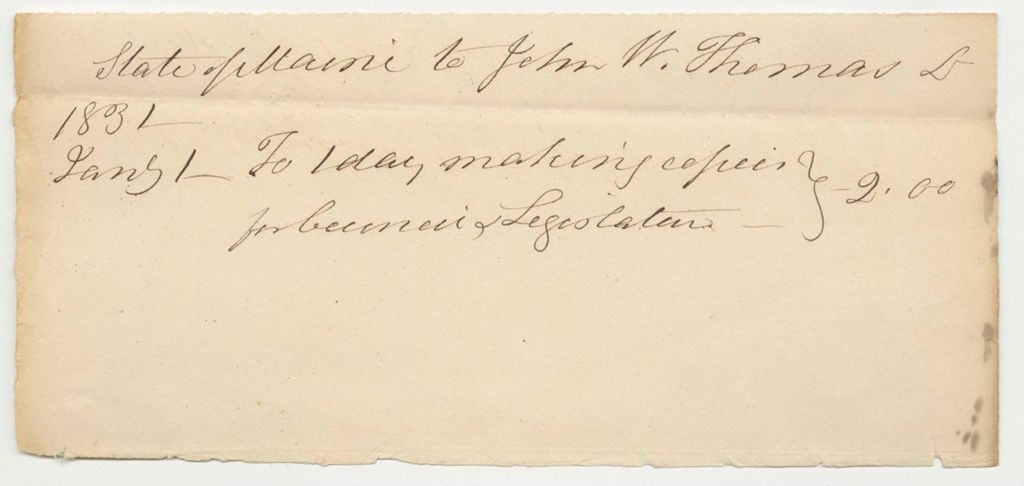 State of Maine to John W. Thomas Dr
1831
Jany 1 To 1 day making copies
for Council & Legislature — } 2.00